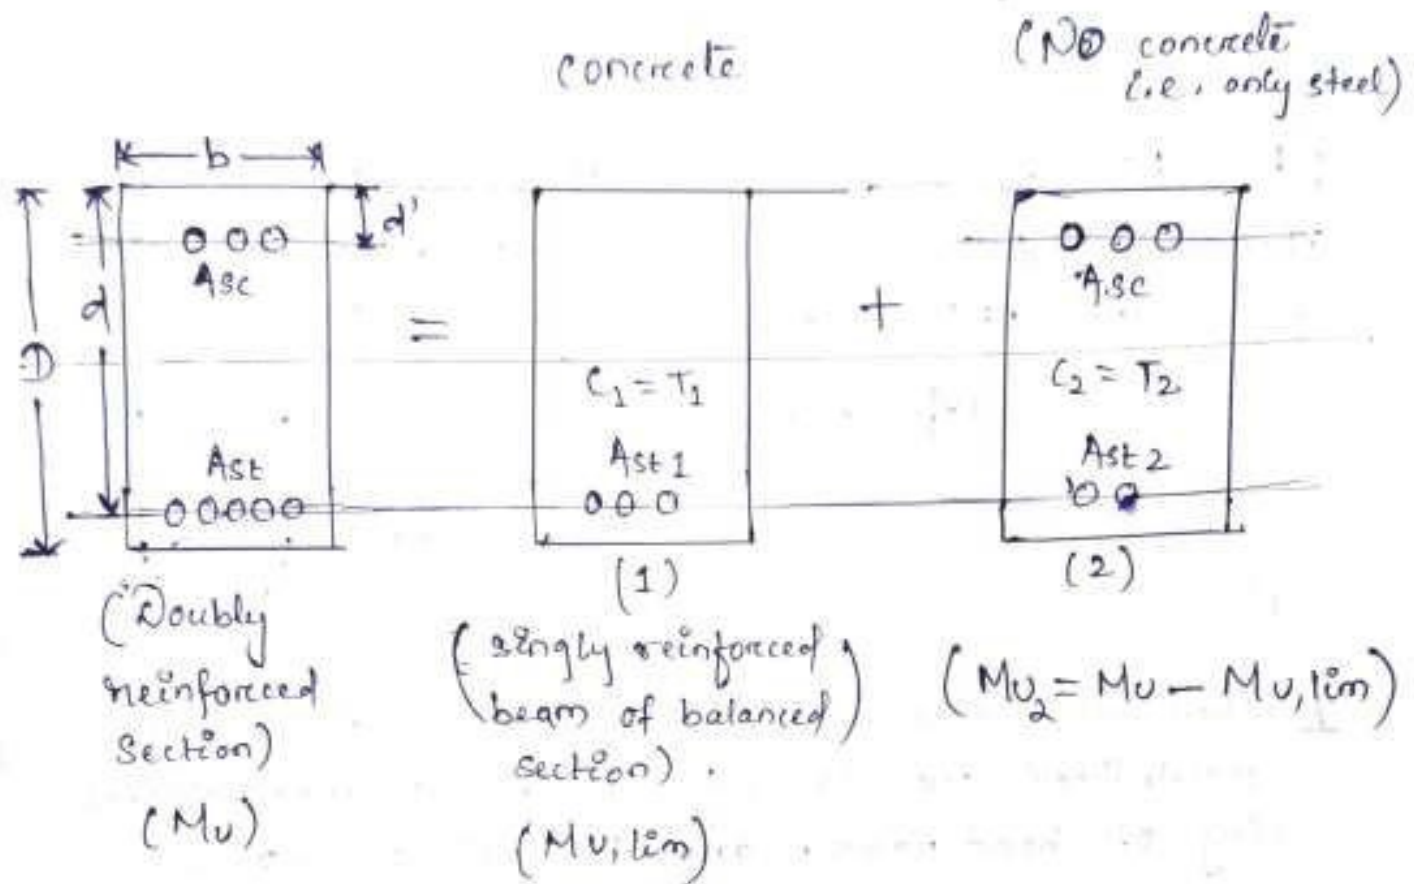 concrete
(No concrete
i.e. only steel)
b
d'
d
D
Asc
Ast
=
C1 = T1
Ast1
+
Asc
C2 = T2
Ast2
(Doubly
reinforced
section)
(Mu)
(1)
(singly reinforced
beam of balanced
section).
(Mu,lim)
(2)
(Mu2 = Mu - Mu,lim)